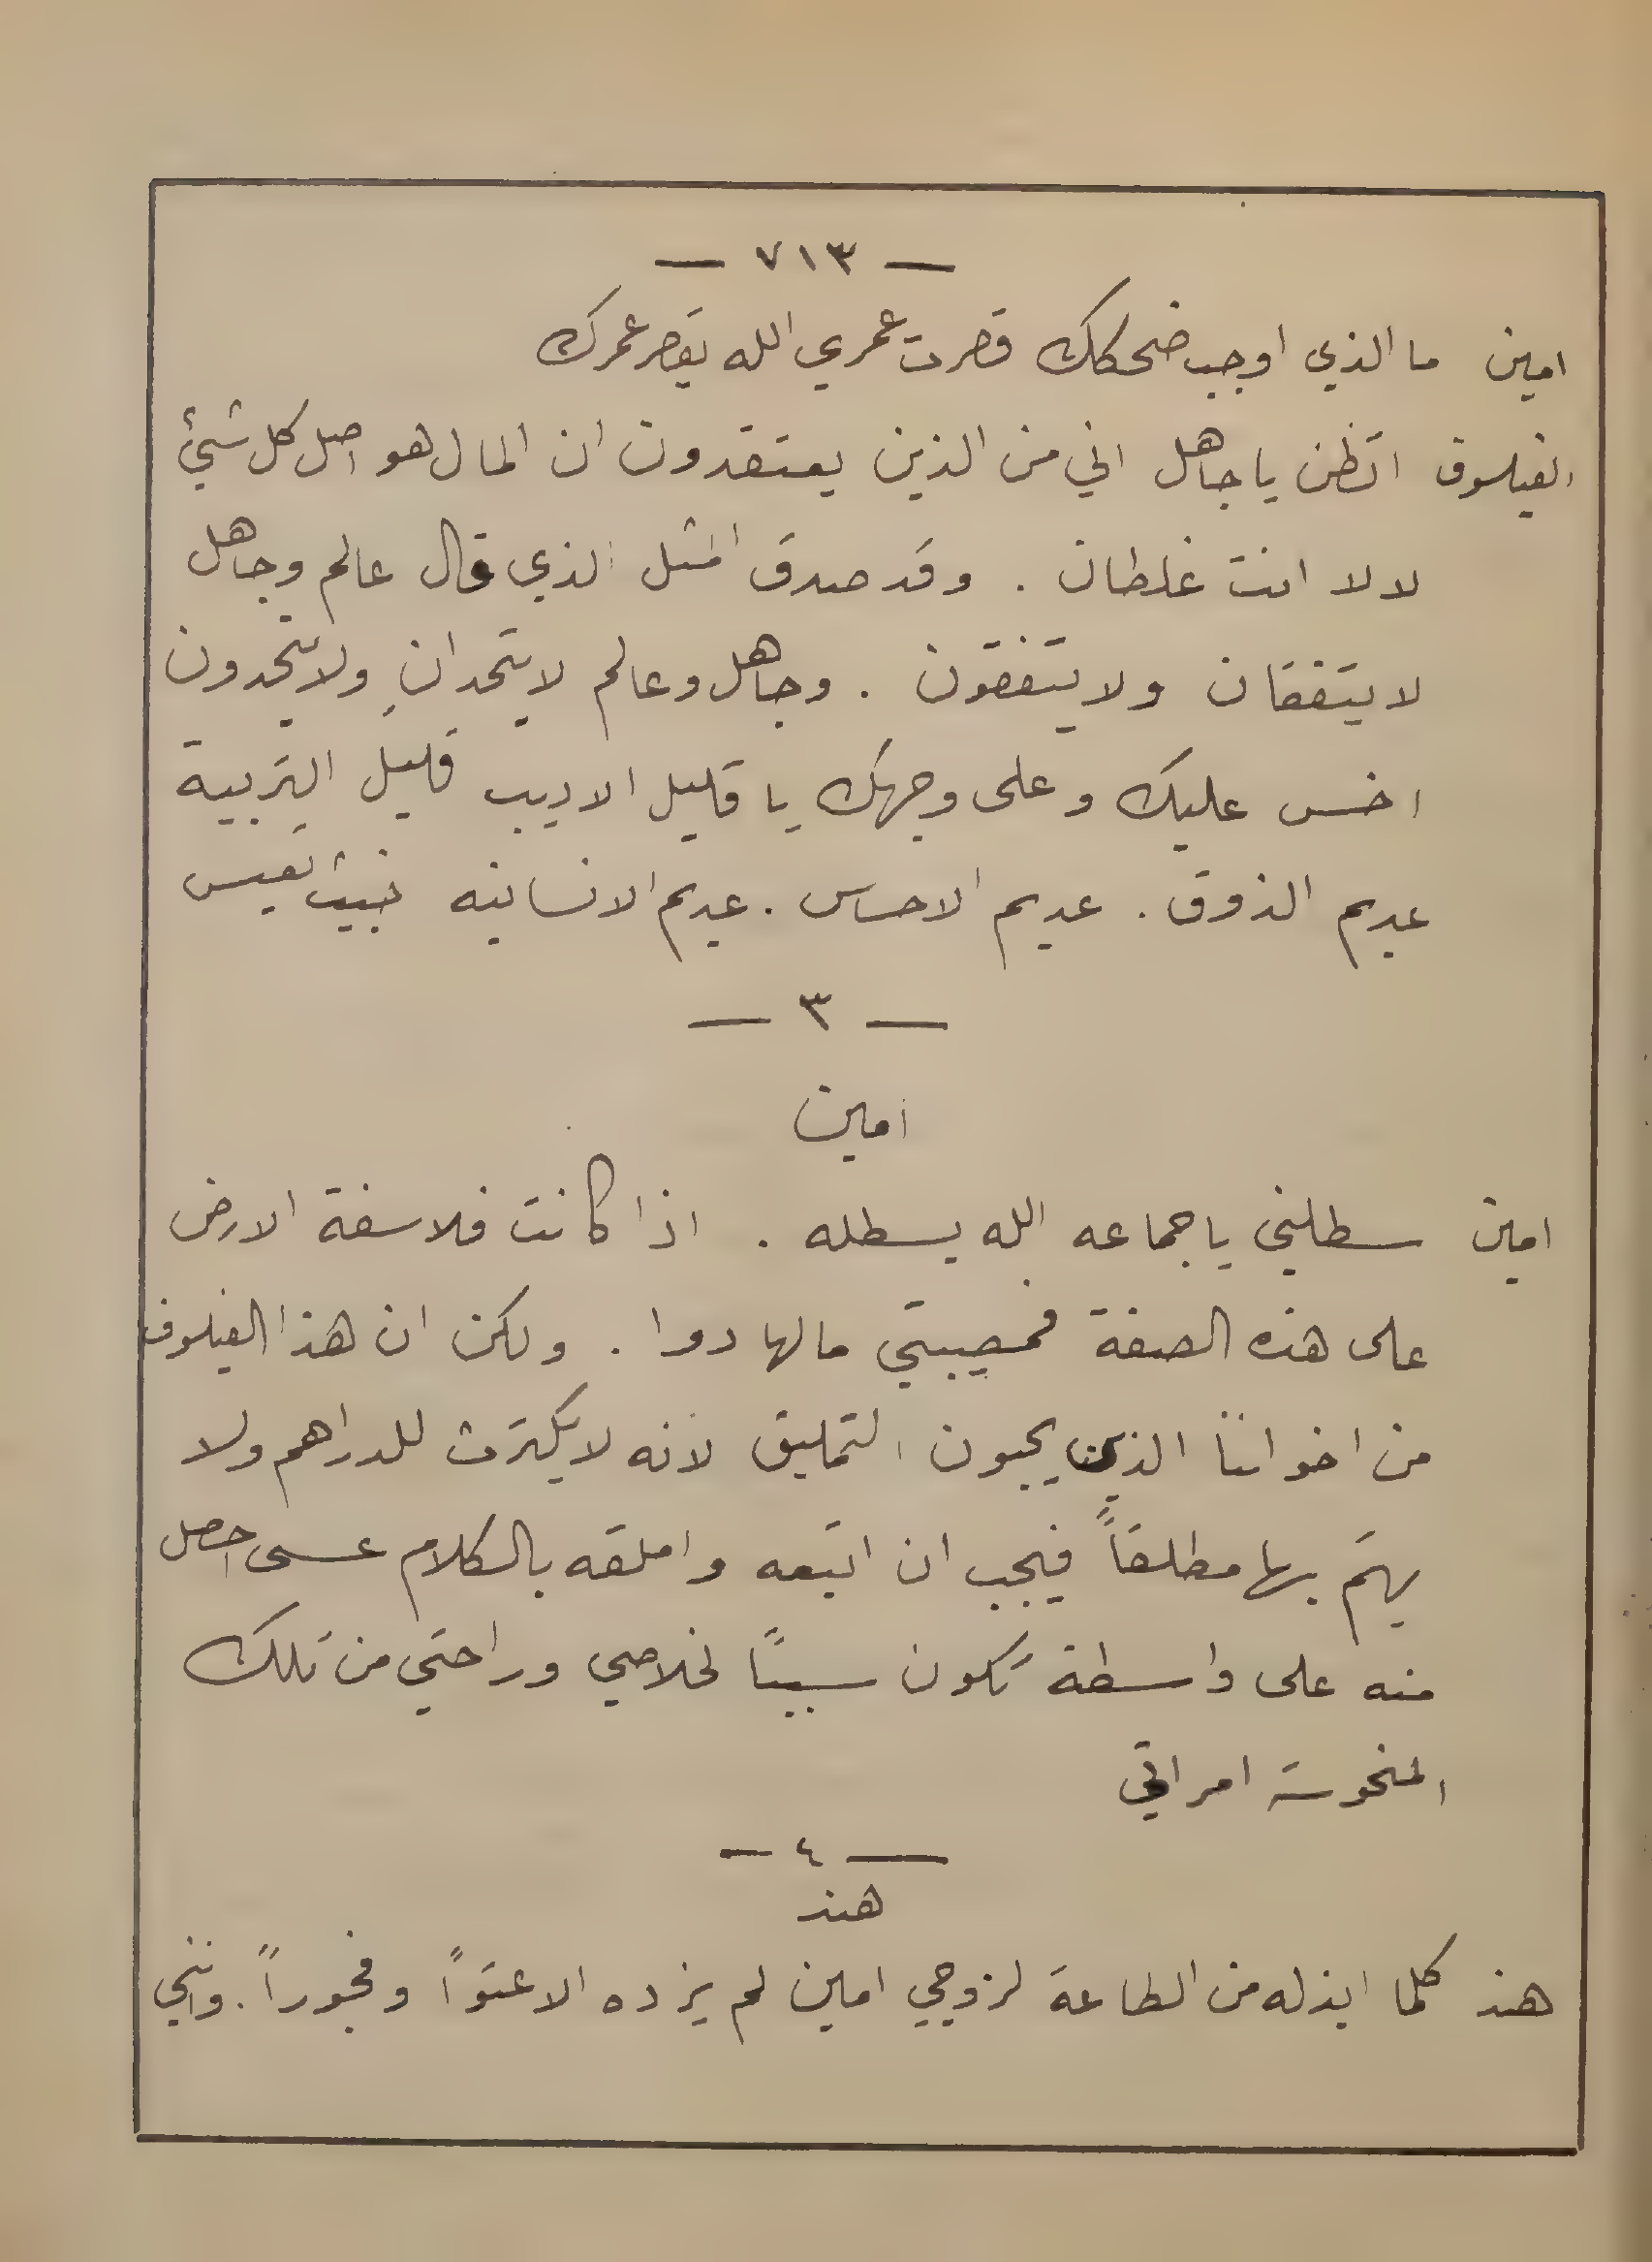 — ٧١٣ —
امين ما الذي اوجب ضحكك قصرت عمري الله يقصر عمرك
الفيلسوف اتظن يا جاهل اني من الذين يعتقدون ان المال هو اصل كل شيئ
لا لا انت غلطان . وقد صدق المثل الذي قال عالم وجاهل
لا يتفقان ولا يتفقون . وجاهل وعالم لا يتحدانِ ولا يتحدون
اخس عليك وعلى وجهك يا قليل الاديب قليل التربية
عديم الذوق . عديم الاحساس . عديم الانسانيه خبيث تعيس
— ٣ —
امين
امين سطلني يا جماعه الله يسطله . اذا كانت فلاسفة الارض
على هذه الصفة فمصيبتي مالها دوا . ولكن ان هذا الفيلسوف
من اخواننا الذين يحبون التمليق لانه لا يكترث للدراهم ولا
يهتم بها مطلقاً فيجب ان اتبعه واملقه بالكلام عسى احصل
منه على واسطة تكون سبباً لخلاصي وراحتي من تلك
المنحوسة امراتي
— ٤ —
هند
هند كلما ابذله من الطاعة لزوجي امين لم يزده الا عتواً وفجوراً . وانني